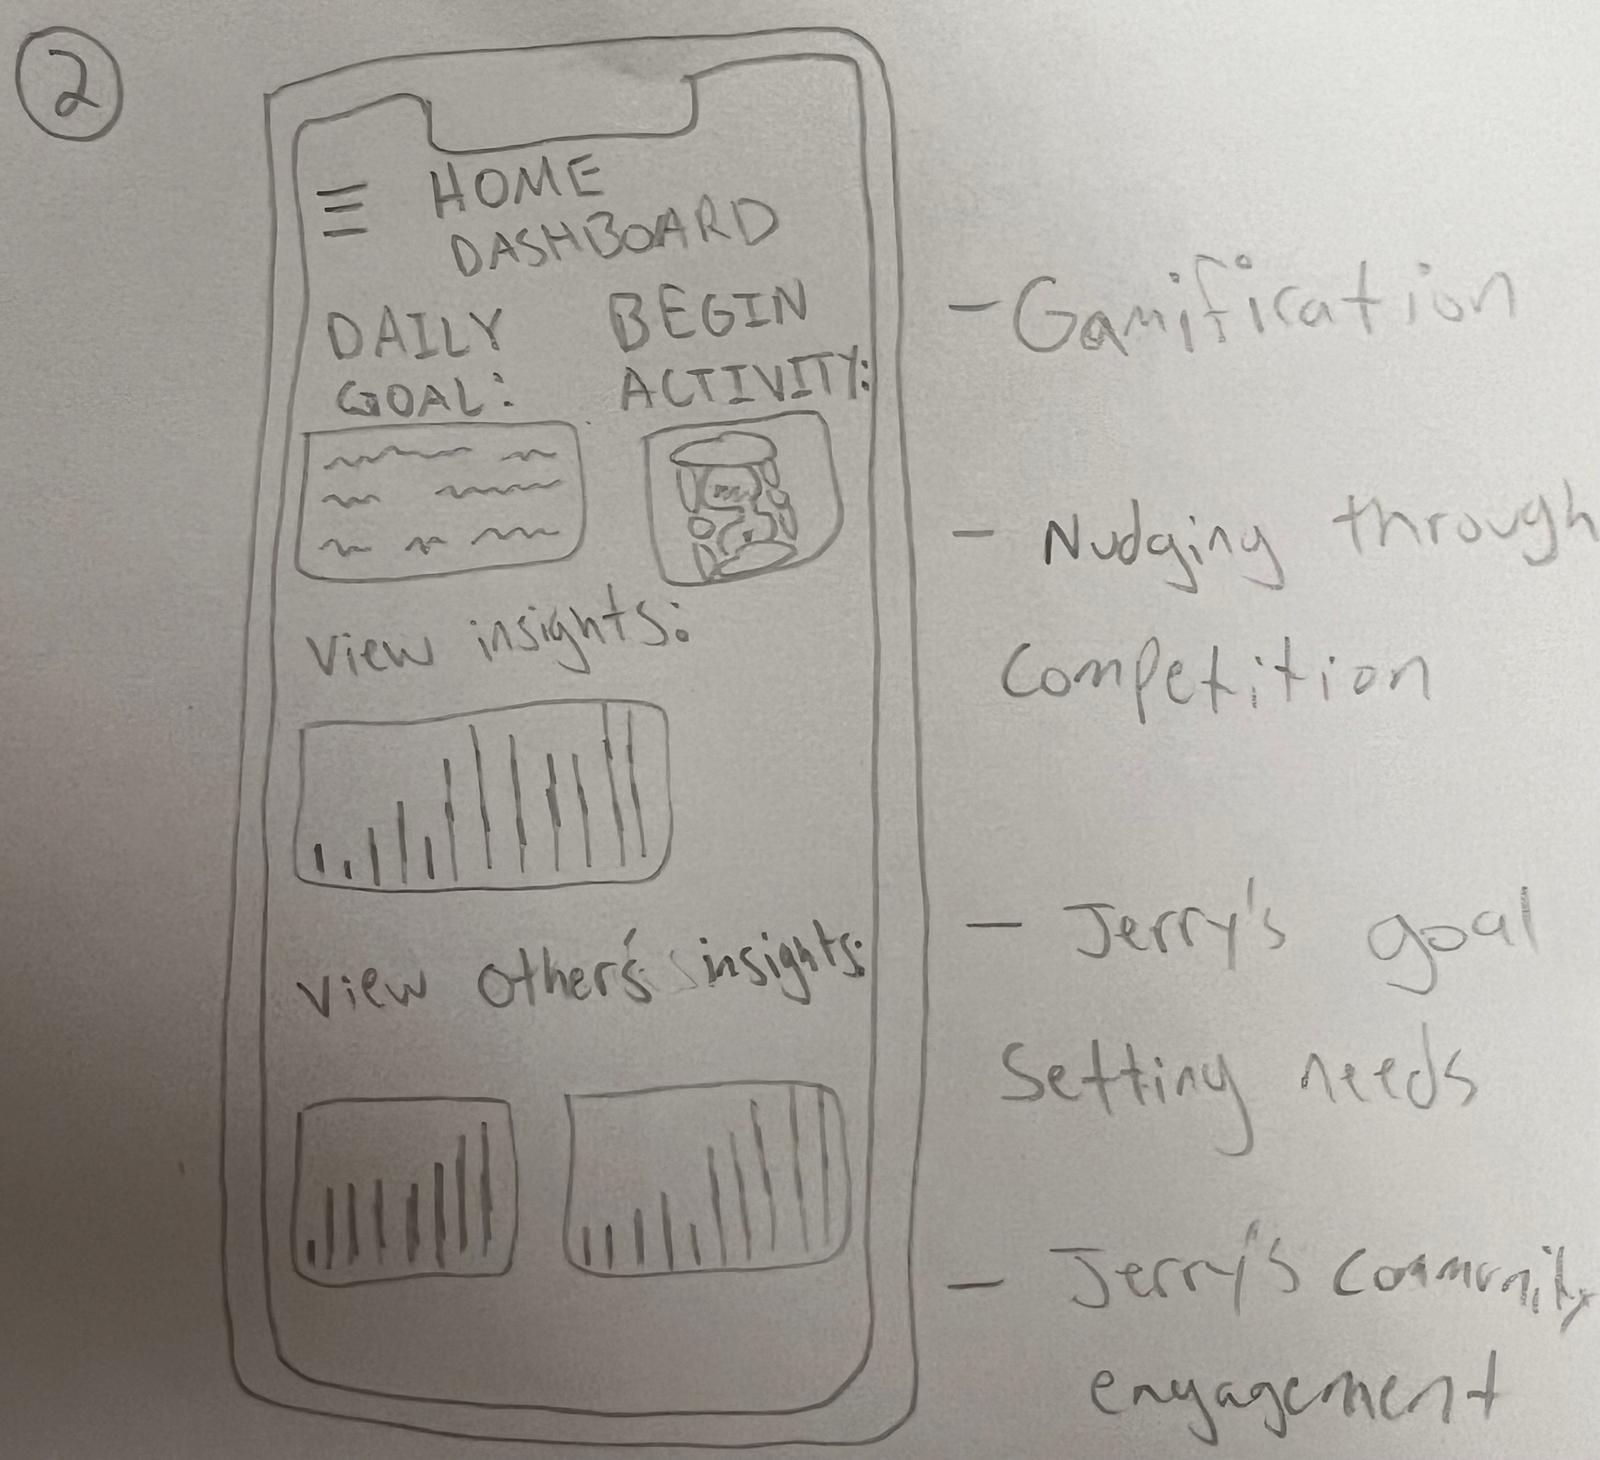 2
HOME
DASHBOARD
DAILY
GOAL:
BEGIN
ACTIVITY:
View insights:
View Other's insights:
- Gamification
- Nudging through
Competition
- Jerry's goal
Setting needs
- Jerry's community
engagement